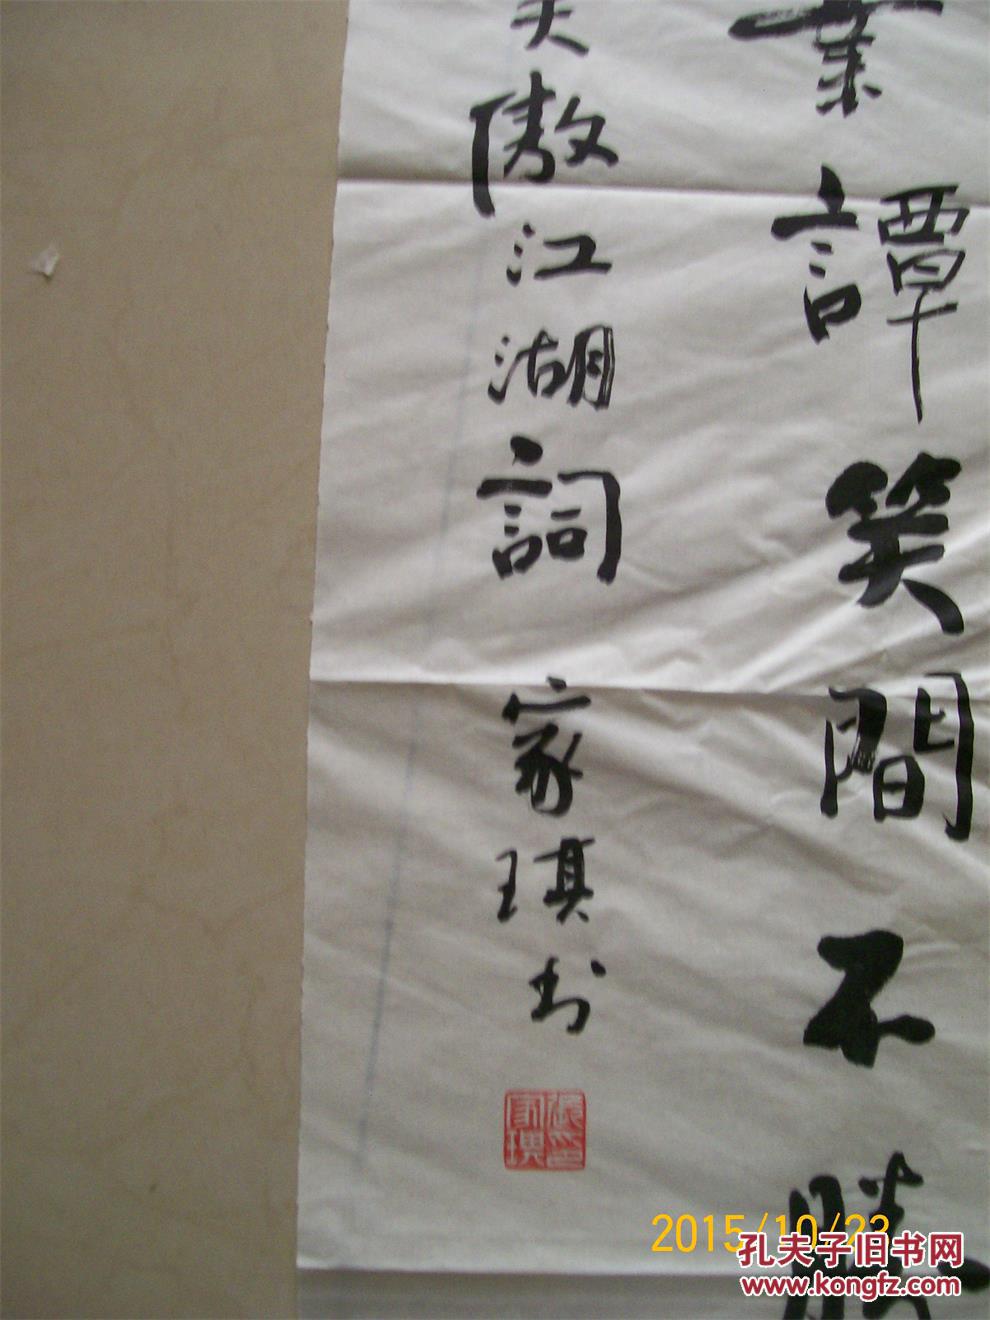 業譚笑間不勝
笑傲江湖詞 家琪书
張家琪印
2015/10/23
孔夫子旧书网
www.kongfz.com